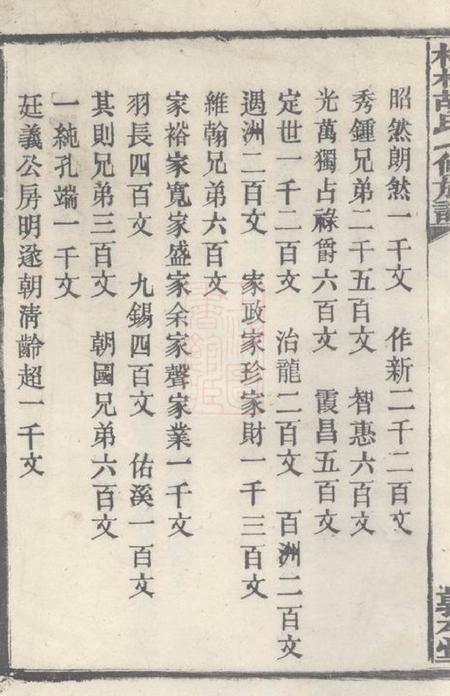 昭然朗然一千文　作新二千二百文
秀鍾兄弟二千五百文　智惠六百文
光萬獨占祿爵六百文　霞昌五百文
定世一千二百文　治龍二百文　百洲二百文
遇洲二百文　家政家珍家財一千三百文
維翰兄弟六百文
家裕家寬家盛家余家聲家業一千文
羽長四百文　九錫四百文　佑溪一百文
其則兄弟三百文　朝國兄弟六百文
一純孔端一千文
廷義公房明遂朝清齡超一千文